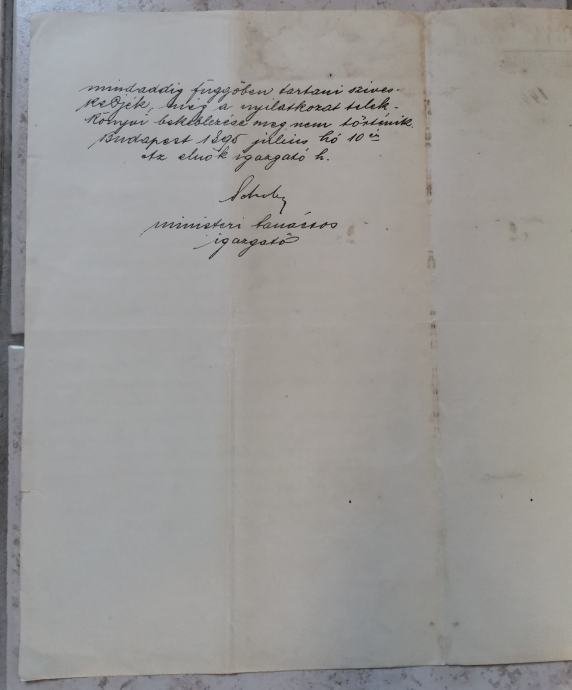 mindaddig függőben tartani szives-
kedjék, míg a nyilatkozat telek-
könyvi bekeblezése meg nem történik.
Budapest 1895 július hó 10 én
Az elnök igazgató h.
ministeri tanácsos
igazgató